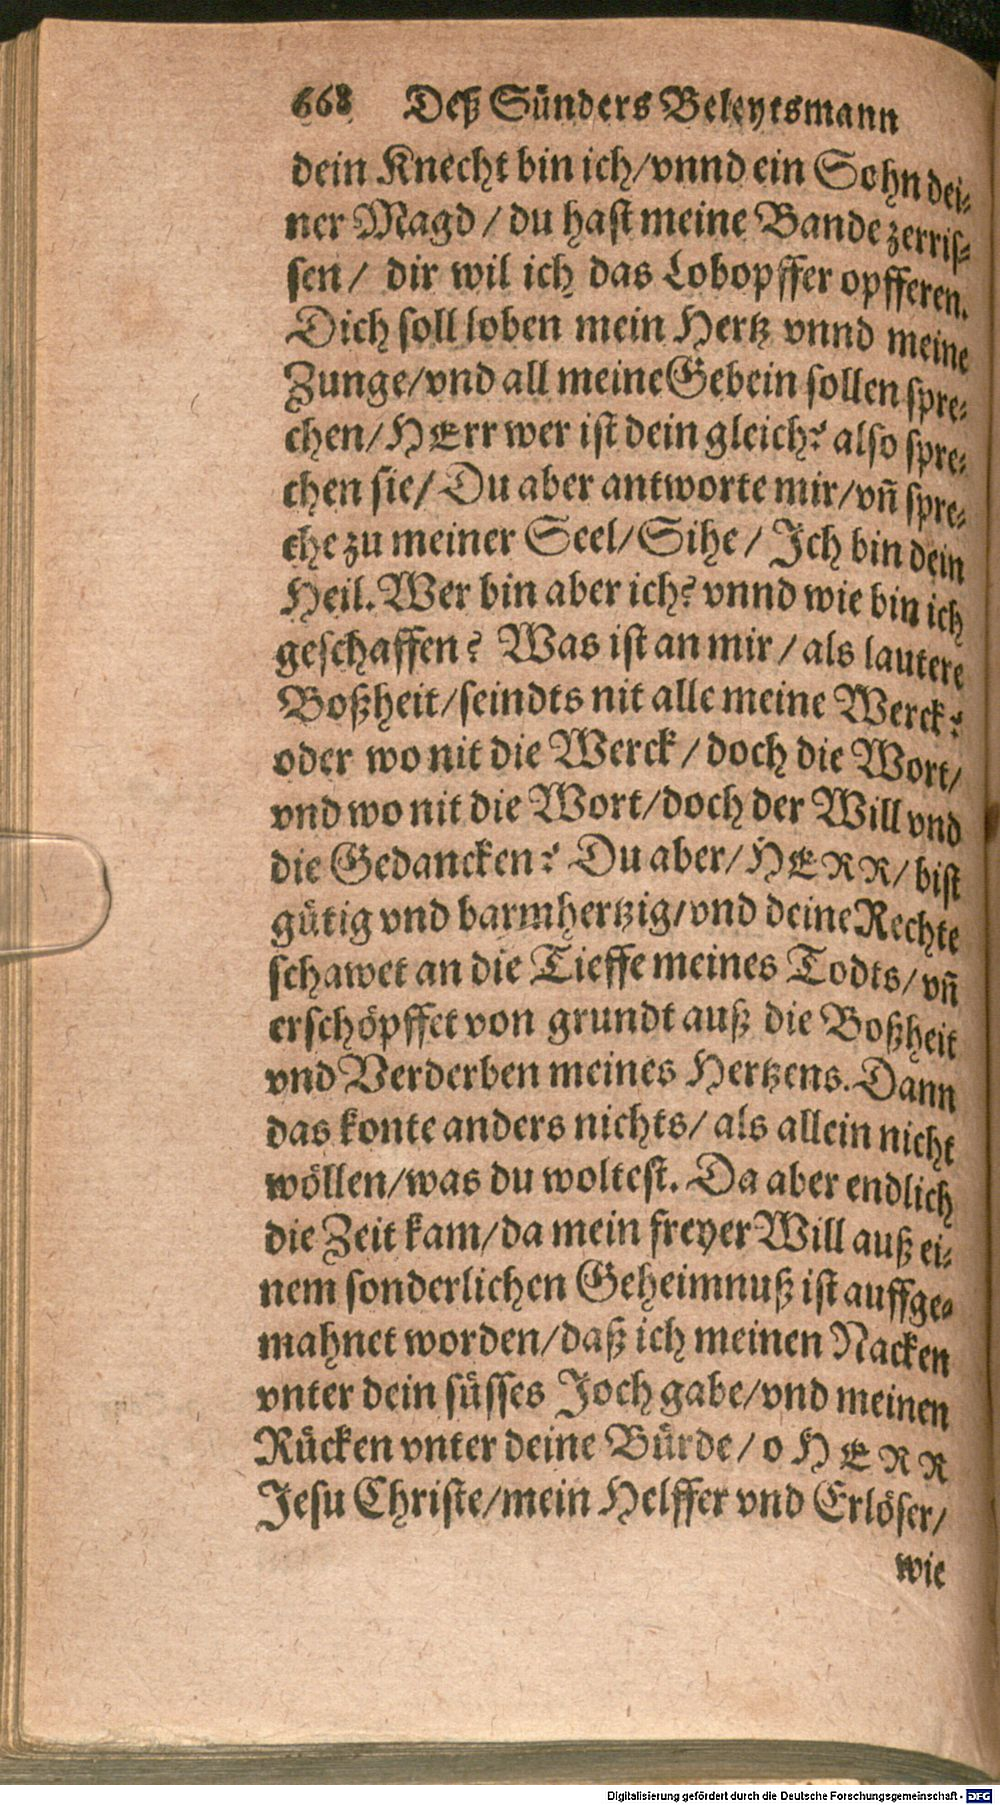 668 Deß Sünders Beleytsmann
dein Knecht bin ich/vnnd ein Sohn dei-
ner Magd / du hast meine Bande zerris-
sen / dir wil ich das Lobopffer opfferen.
Dich soll loben mein Hertz vnnd meine
Zunge/vnd all meine Gebein sollen spre-
chen/HErr wer ist dein gleich? also spre-
chen sie/ Du aber antworte mir/vñ spre-
che zu meiner Seel/Sihe / Ich bin dein
Heil. Wer bin aber ich? vnnd wie bin ich
geschaffen? Was ist an mir / als lautere
Boßheit/seindts nit alle meine Werck?
oder wo nit die Werck / doch die Wort/
vnd wo nit die Wort/doch der Will vnd
die Gedancken? Du aber/HERR/ bist
gütig vnd barmhertzig/vnd deine Rechte
schawet an die Tieffe meines Todts/vñ
erschöpffet von grundt auß die Boßheit
vnd Verderben meines Hertzens. Dann
das konte anders nichts/ als allein nicht
wöllen/was du woltest. Da aber endlich
die Zeit kam/da mein freyer Will auß ei-
nem sonderlichen Geheimnuß ist auffge-
mahnet worden/daß ich meinen Nacken
vnter dein süsses Joch gabe/vnd meinen
Rücken vnter deine Bürde/ o HERR
Jesu Christe/mein Helffer vnd Erlöser/
wie
Digitalisierung gefördert durch die Deutsche Forschungsgemeinschaft - DFG